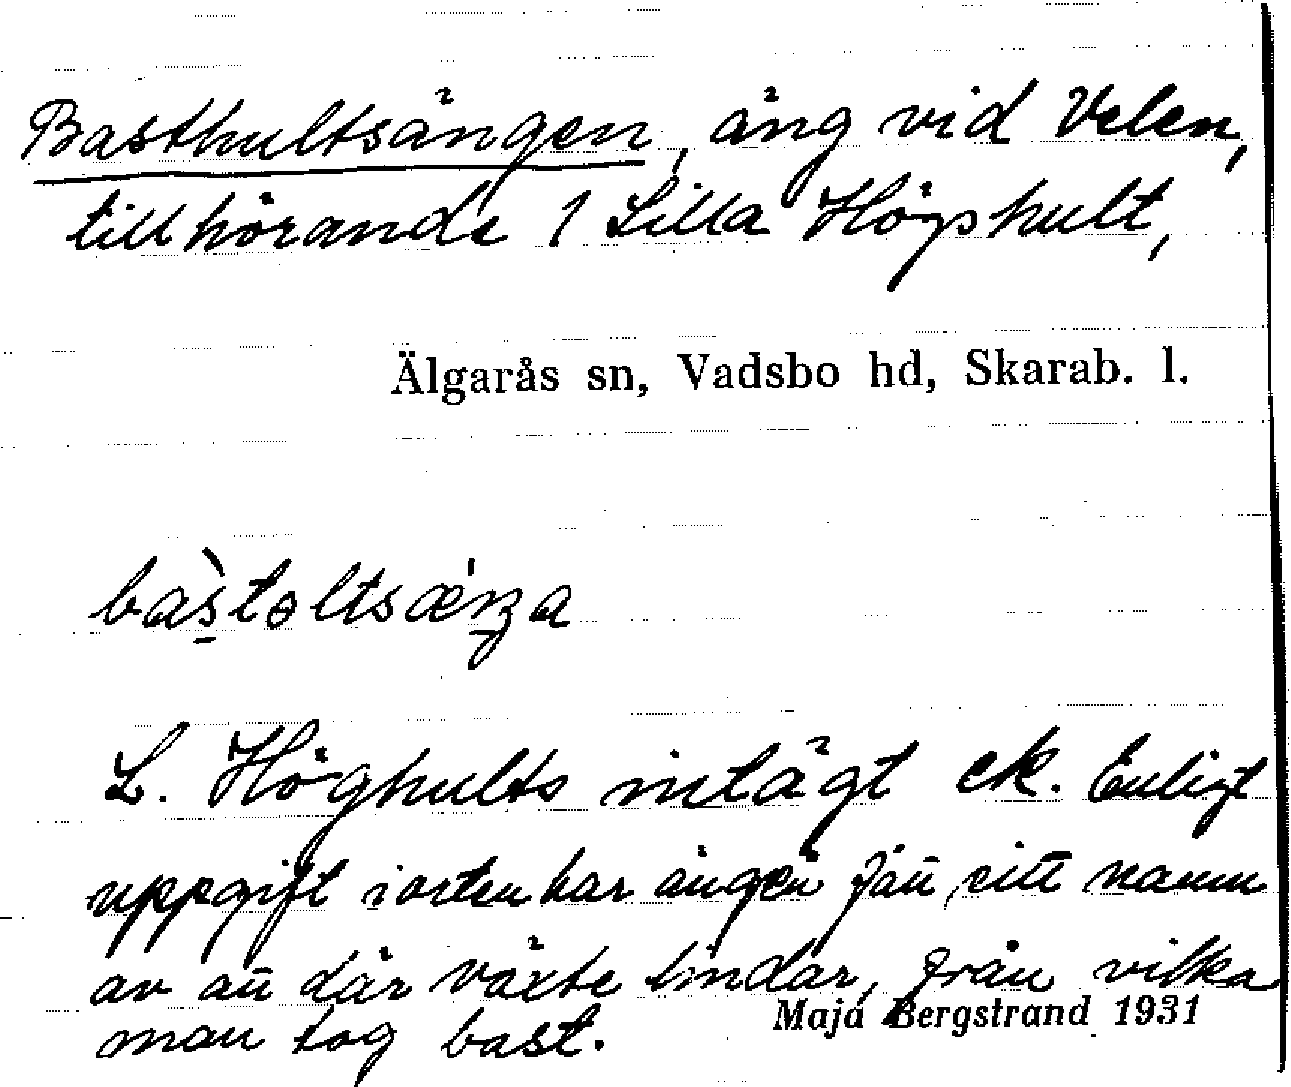 Basthultsängen, äng vid Velen,
tillhörande 1 Lilla Högshult,
Älgarås sn, Vadsbo hd, Skarab. l.
L. Höghults intägt ek. Enligt
uppgift i orten har ängen fått sitt namn
av att där växte lindar, från vilka
man tog bast.
Maja Bergstrand 1931